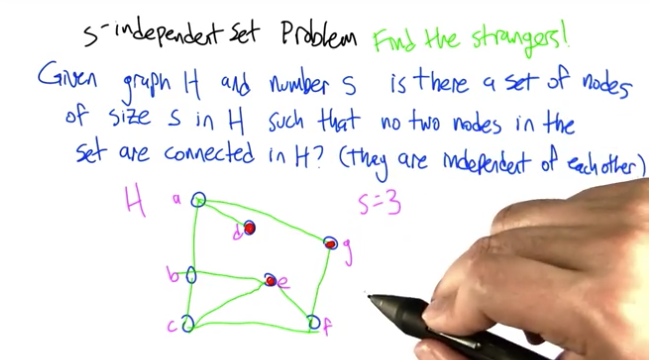 s-independent set Problem Find the strangers!
Given graph H and number s is there a set of nodes
of size s in H such that no two nodes in the
set are connected in H? (they are independent of each other)
H a s=3
d
g
b e
c f